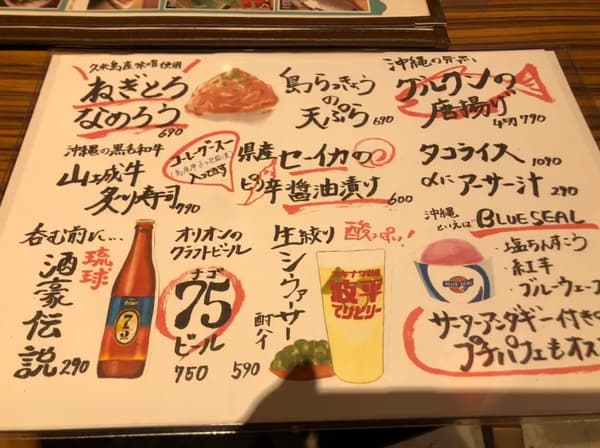 久米島産味噌使用
ねぎとろ
なめろう
690
島らっきょう
の
天ぷら 690
沖縄の県魚
グルクンの
唐揚げ
790
沖縄の黒毛和牛
山城牛
炙り寿司 790
コーレーグースー
入ってます
県産 セーイカの
ピリ辛 醤油漬け 600
タコライス 1090
〆にアーサー汁 290
呑む前に…
琉球
酒豪伝説
290
オリオンの
クラフトビール
ナゴ
75
ビール
750
75
生絞り 酸っぱい!
シークヮーサー
酎ハイ
590
沖縄
といえば BLUE SEAL
BLUE SEAL
・塩ちんすこう
・紅芋
・ブルーウェーブ
サーターアンダギー付きの
プチパフェもオス